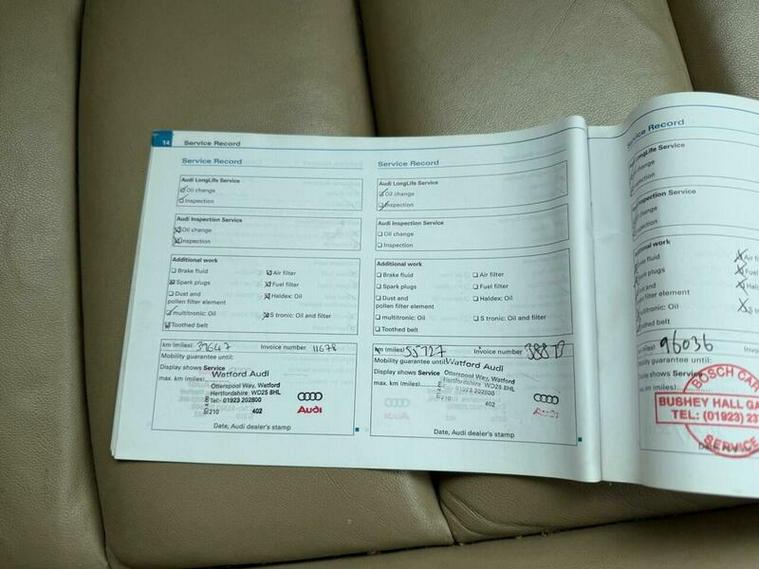 14 Service Record
Service Record
Audi LongLife Service
Oil change
Inspection
Audi Inspection Service
Oil change
Inspection
Additional work
Brake fluid
Air filter
Spark plugs
Fuel filter
Dust and
pollen filter element
Haldex: Oil
multitronic: Oil
S tronic: Oil and filter
Toothed belt
km (miles) 39647 Invoice number 11678
Mobility guarantee until:
Display shows Service
max. km (miles)
Watford Audi
Otterspool Way, Watford
Hertfordshire WD25 8HL
Tel: 01923 202800
210 402
Audi
Date, Audi dealer's stamp
Service Record
Audi LongLife Service
Oil change
Inspection
Audi Inspection Service
Oil change
Inspection
Additional work
Brake fluid
Air filter
Spark plugs
Fuel filter
Dust and
pollen filter element
Haldex: Oil
multitronic: Oil
S tronic: Oil and filter
Toothed belt
km (miles) 55727 Invoice number
Mobility guarantee until
Display shows Service
max. km (miles)
Watford Audi
Otterspool Way, Watford
Hertfordshire WD25 8HL
01923 202800
210 402
Audi
Date, Audi dealer's stamp
Service Record
LongLife Service
change
Inspection Service
change
fluid
plugs
filter element
Oil
belt
96036
guarantee until:
BOSCH CAR
BUSHEY HALL GA
TEL: (01923) 23
SERVICE